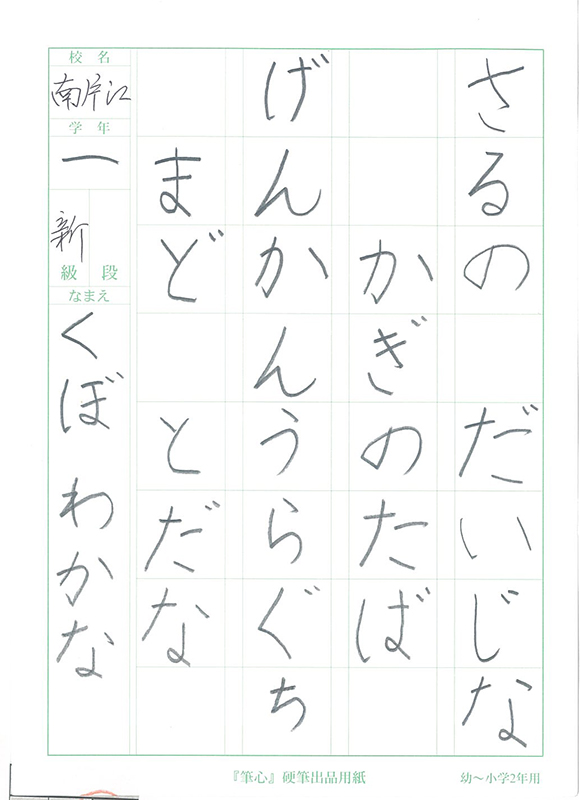 さるの　だいじな
かぎのたば
げんかん　うらぐち
まど　とだな
校名
南片江
学年
一
新
級　段
なまえ
くぼ　わかな
『筆心』硬筆出品用紙
幼～小学2年用